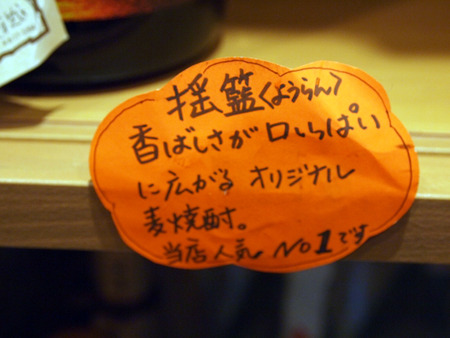 揺籃〈ようらん〉
香ばしさが口いっぱい
に広がる オリジナル
麦焼酎。
当店人気 No1です